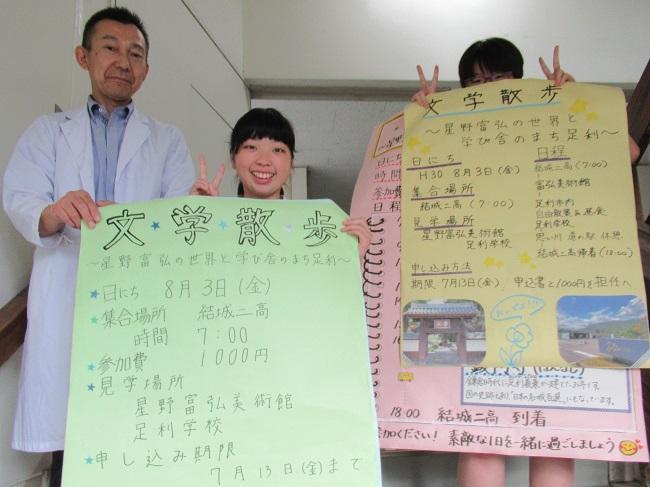 文学散歩
～星野富弘の世界と学び舎のまち足利～
★日にち 8月3日(金)
★集合場所 結城二高
時間 7:00
★参加費 1000円
★見学場所
星野富弘美術館
足利学校
★申し込み期限
7月13日(金)まで
文学散歩
～星野富弘の世界と
学び舎のまち足利～
日にち
H30 8月3日(金)
集合場所
結城二高(7:00)
見学場所
星野富弘美術館
足利学校
日程
結城二高(7:00)
富弘美術館
足利市内
自由散策&昼食
足利学校
思い川 道の駅 休憩
結城二高帰着(18:00)
申し込み方法
期限:7月13日(金) 申込書と1000円を担任へ
日にち
時間
参加費
日程
18:00 結城二高 到着
参加ください! 素敵な1日を一緒に過ごしましょう